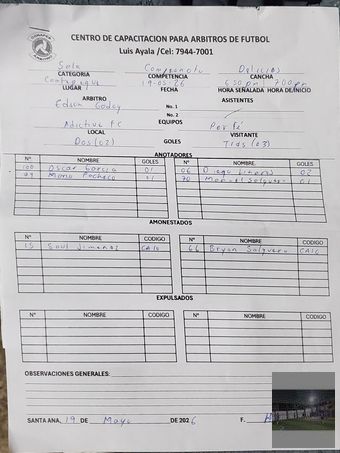 CENTRO DE CAPACITACIÓN PARA ARBITROS DE FUTBOL
Luis Ayala /Cel: 7944-7001
Sala Campeonato Delicias
CATEGORIA COMPETENCIA CANCHA
19-05-26 6:50 pm 7:00 pm
LUGAR FECHA HORA SEÑALADA HORA DE INICIO
ARBITRO ASISTENTES
Edwin Godoy No. 1
No. 2
EQUIPOS
Adictive FC Por Fé
LOCAL VISITANTE
Dos (02) GOLES Tres (03)
ANOTADORES
N° NOMBRE GOLES N° NOMBRE GOLES
100 Oscar Garcia 01 06 Diego Linares 02
99 Mario Pacheco 01 70 Manuel 01
AMONESTADOS
N° NOMBRE CODIGO N° NOMBRE CODIGO
15 Saul Jimenez CA10 66 Bryan CA10
EXPULSADOS
N° NOMBRE CODIGO N° NOMBRE CODIGO
OBSERVACIONES GENERALES:
SANTA ANA, 19 DE Mayo DE 2026 F.